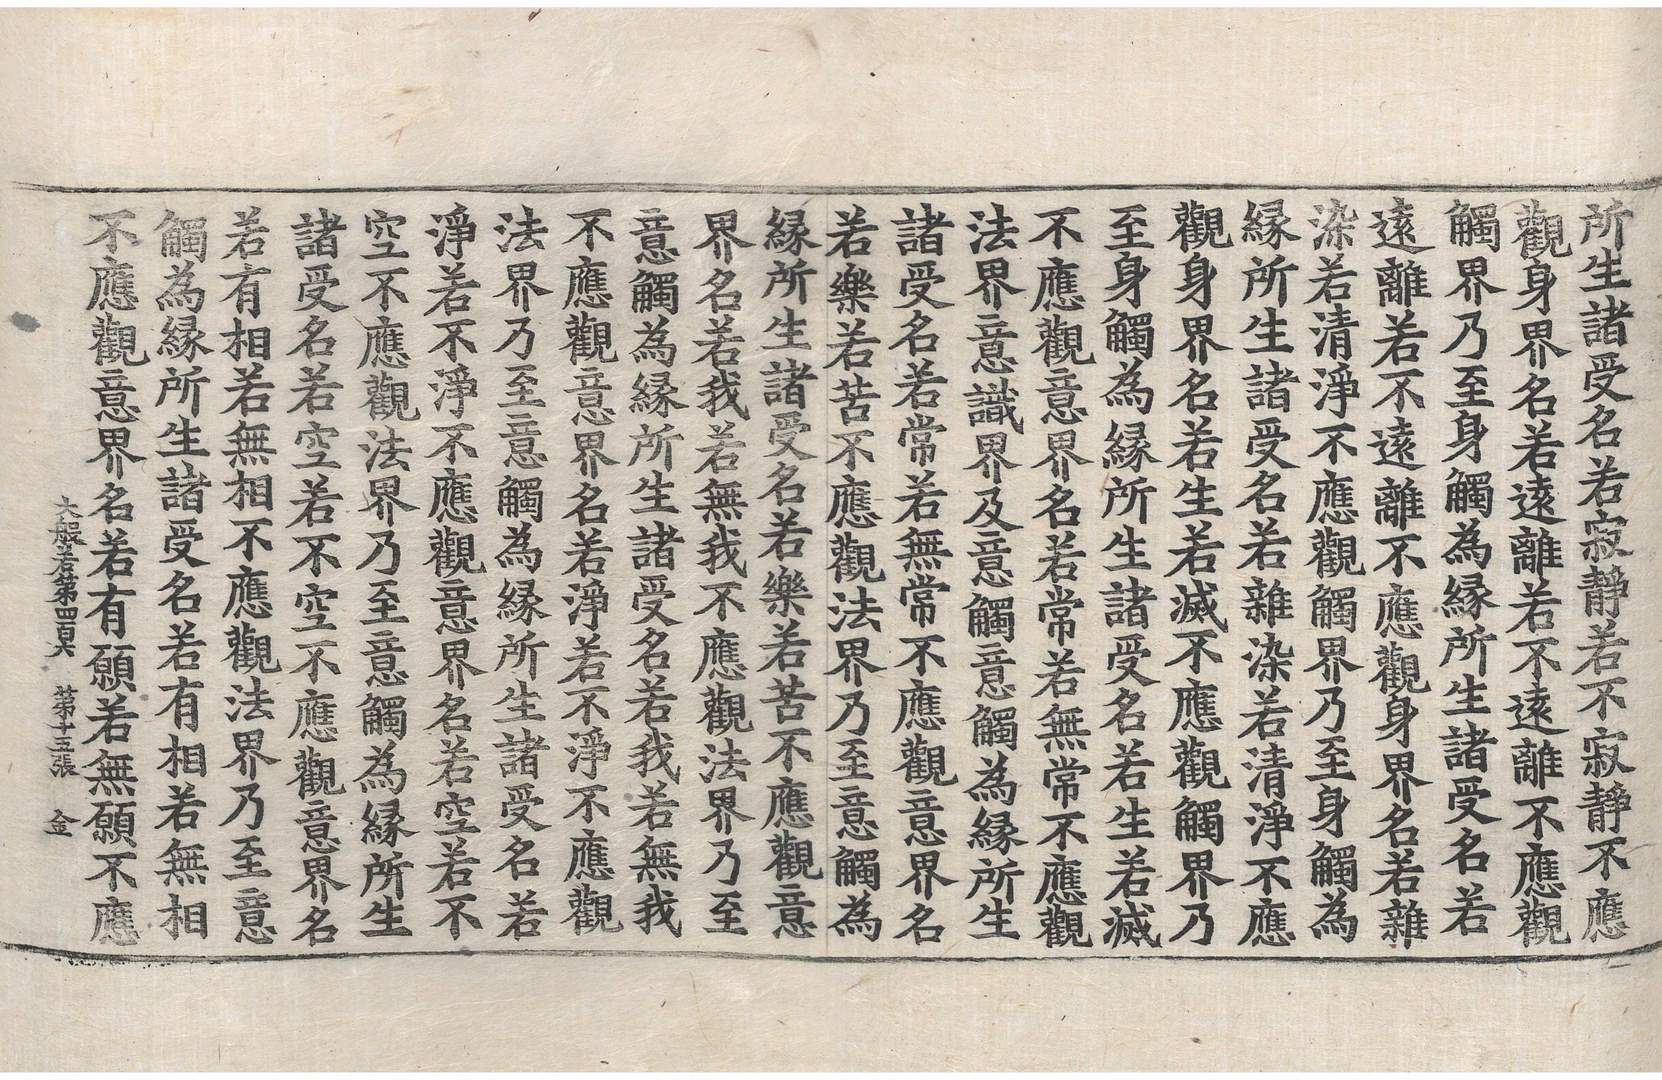 所生諸受名若寂靜若不寂靜不應
觀身界名若遠離若不遠離不應觀
觸界乃至身觸為縁所生諸受名若
遠離若不遠離不應觀身界名若雜
染若清淨不應觀觸界乃至身觸為
縁所生諸受名若雜染若清淨不應
觀身界名若生若滅不應觀觸界乃
至身觸為縁所生諸受名若生若滅
不應觀意界名若常若無常不應觀
法界意識界及意觸意觸為縁所生
諸受名若常若無常不應觀意界名
若樂若苦不應觀法界乃至意觸為
縁所生諸受名若樂若苦不應觀意
界名若我若無我不應觀法界乃至
意觸為縁所生諸受名若我若無我
不應觀意界名若淨若不淨不應觀
法界乃至意觸為縁所生諸受名若
淨若不淨不應觀意界名若空若不
空不應觀法界乃至意觸為縁所生
諸受名若空若不空不應觀意界名
若有相若無相不應觀法界乃至意
觸為縁所生諸受名若有相若無相
不應觀意界名若有願若無願不應
大般若第四百六 第十三張 金